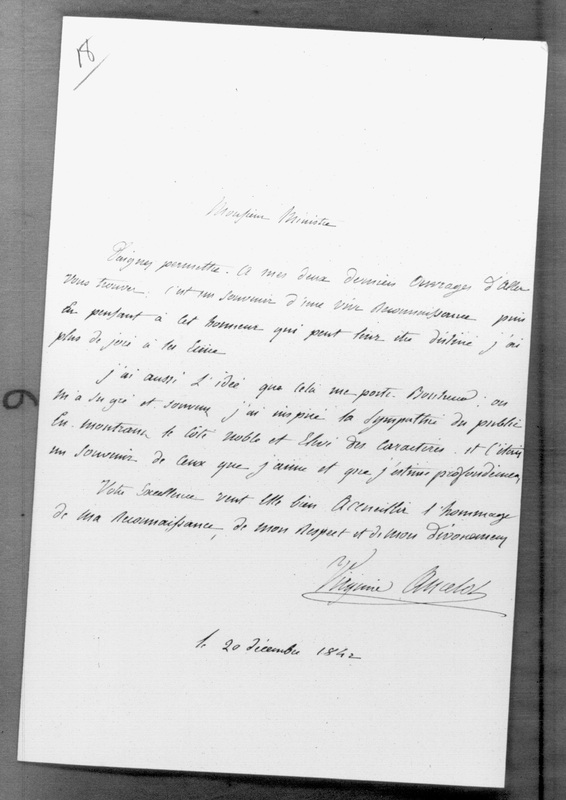 Monsieur Ministre
Daignez permettre à mes deux derniers ouvrages d'aller
vous trouver. C'est un souvenir d'une vive reconnaissance puis
En pensant à cet honneur qui peut leur être destiné j'ai
plus de joie à les
j'ai aussi l'idée que cela me porte Bonheur. on
m'a su gré et souvent j'ai inspiré la sympathie du public
En montrant le Côté noble et Elevé des Caractères. et C'étoit
un souvenir de ceux que j'aime et que j'estime profondément
Votre Excellence veut elle bien Accueillir l'hommage
de ma Reconnaissance, de mon Respect et de mon Dévouement
Virginie Ancelot
le 20 décembre 1842